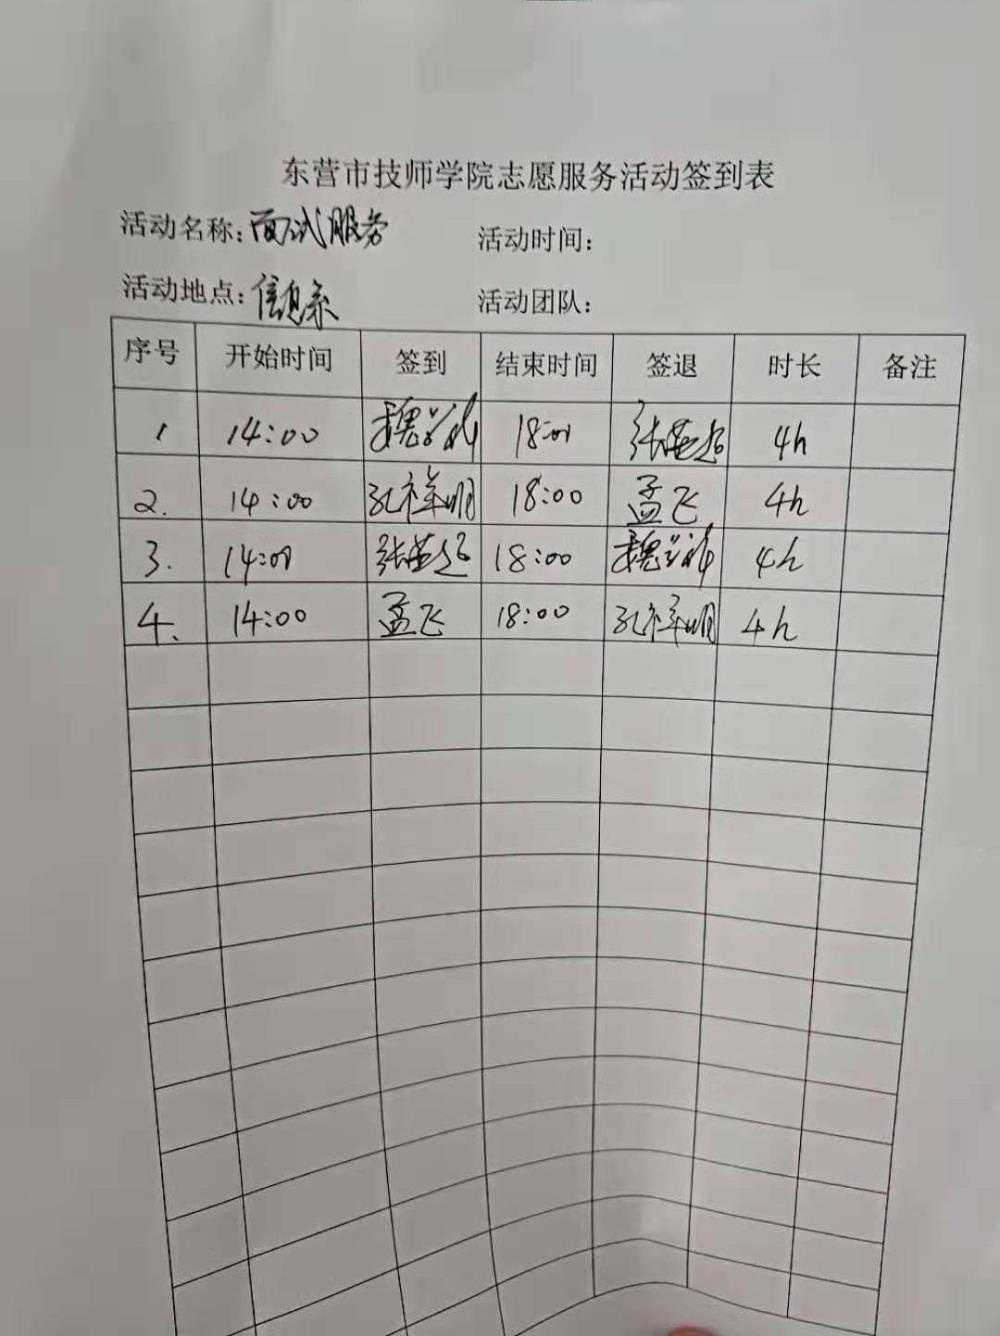 东营市技师学院志愿服务活动签到表
活动名称：面试服务 活动时间：
活动地点：信息系 活动团队：
序号 开始时间 签到 结束时间 签退 时长 备注
1 14:00 18:00 4h
2. 14:00 孔祥明 18:00 孟飞 4h
3. 14:00 18:00 4h
4. 14:00 孟飞 18:00 孔祥明 4h